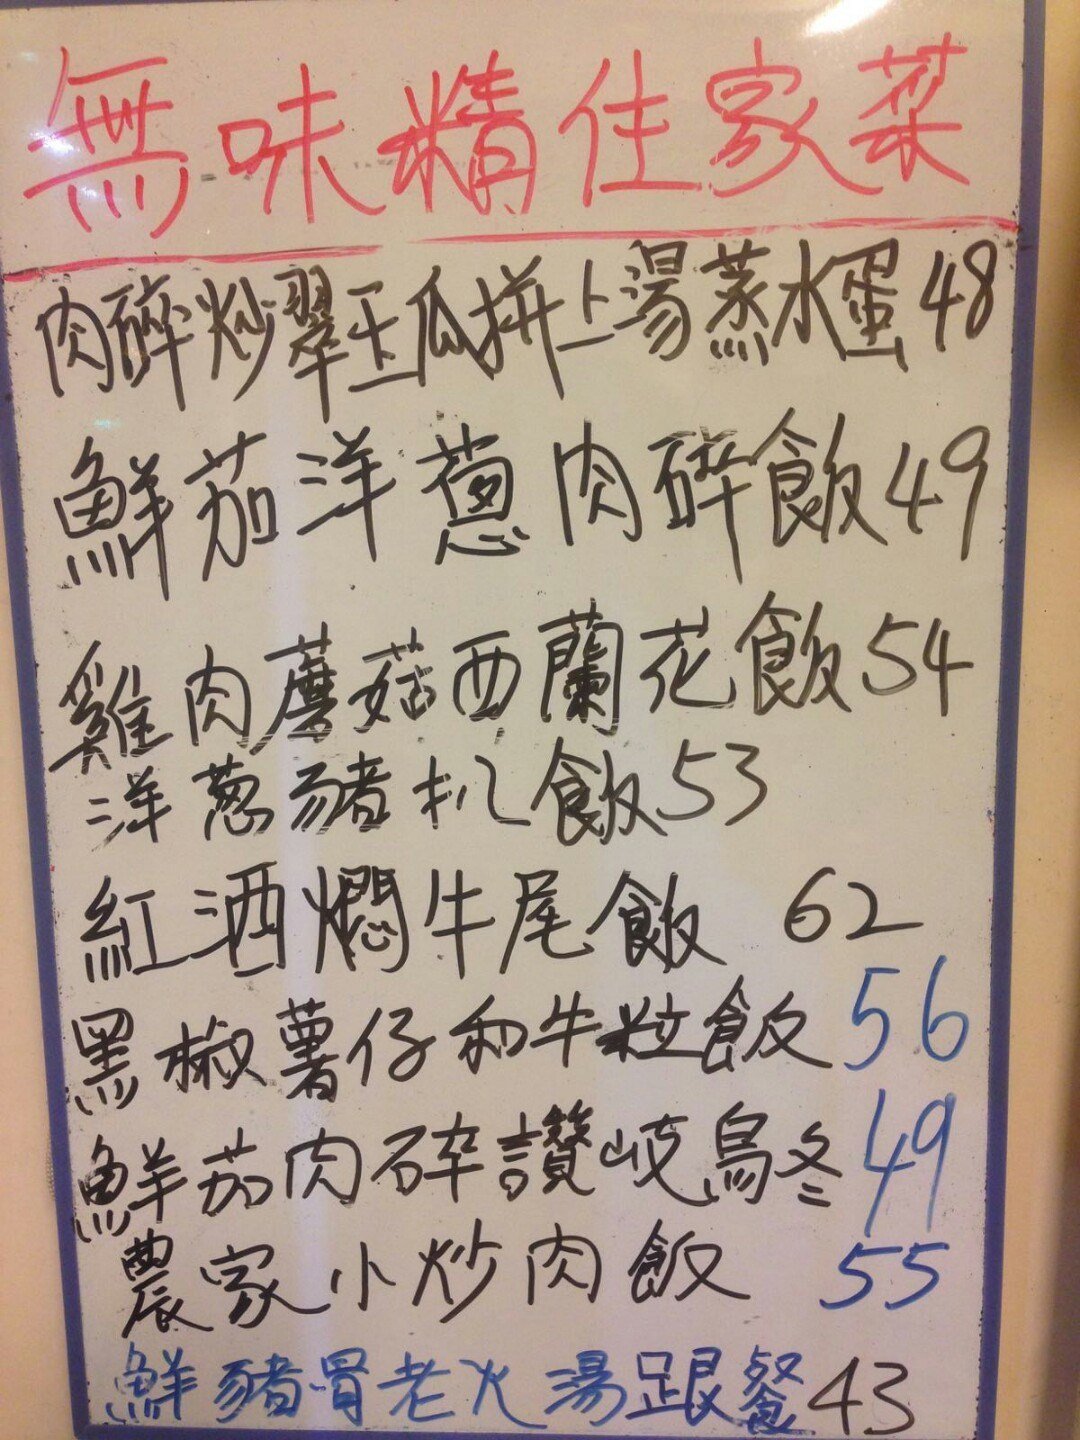 無味精住家菜
肉碎炒翠玉瓜拼上湯蒸水蛋48
鮮茄洋蔥肉碎飯49
雞肉蘑菇西蘭花飯54
洋葱豬扒飯53
紅酒燜牛尾飯 62
黑椒薯仔和牛粒飯56
鮮茄肉碎讚岐烏冬49
農家小炒肉飯 55
鮮豬骨老火湯跟餐43